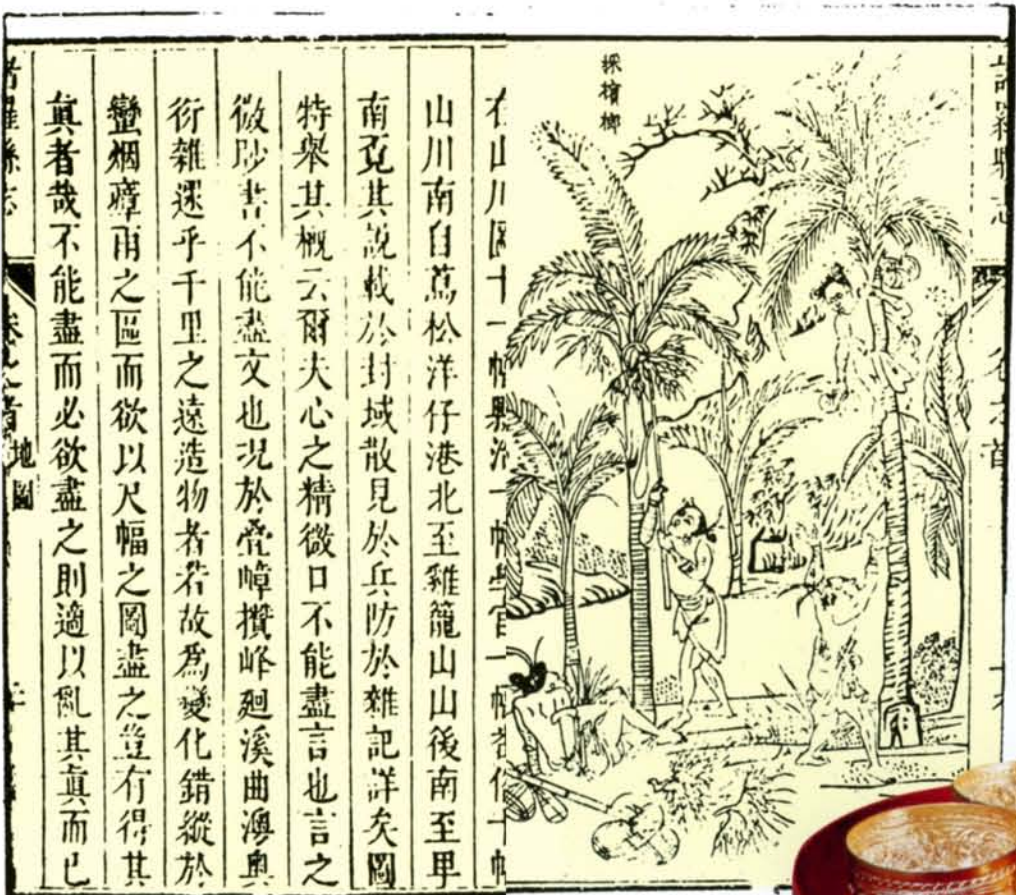 諸羅縣志
卷之首
採檳榔
山川圖十一幅縣治一幅學宮一幅番俗十幅
山川南自蔦松洋仔港北至雞籠山山後南至卑
南覓其說載於封域散見於兵防於雜記詳矣圖
特舉其概云爾夫心之精微口不能盡言也言之
微眇書不能盡文也況於疊嶂攢峰廻溪曲澳奧
衍雜遝乎千里之遠造物者若故為變化錯縱於
蠻烟瘴雨之區而欲以尺幅之圖盡之豈有得其
眞者哉不能盡而必欲盡之則適以亂其眞而已
諸羅縣志
卷之首
地圖